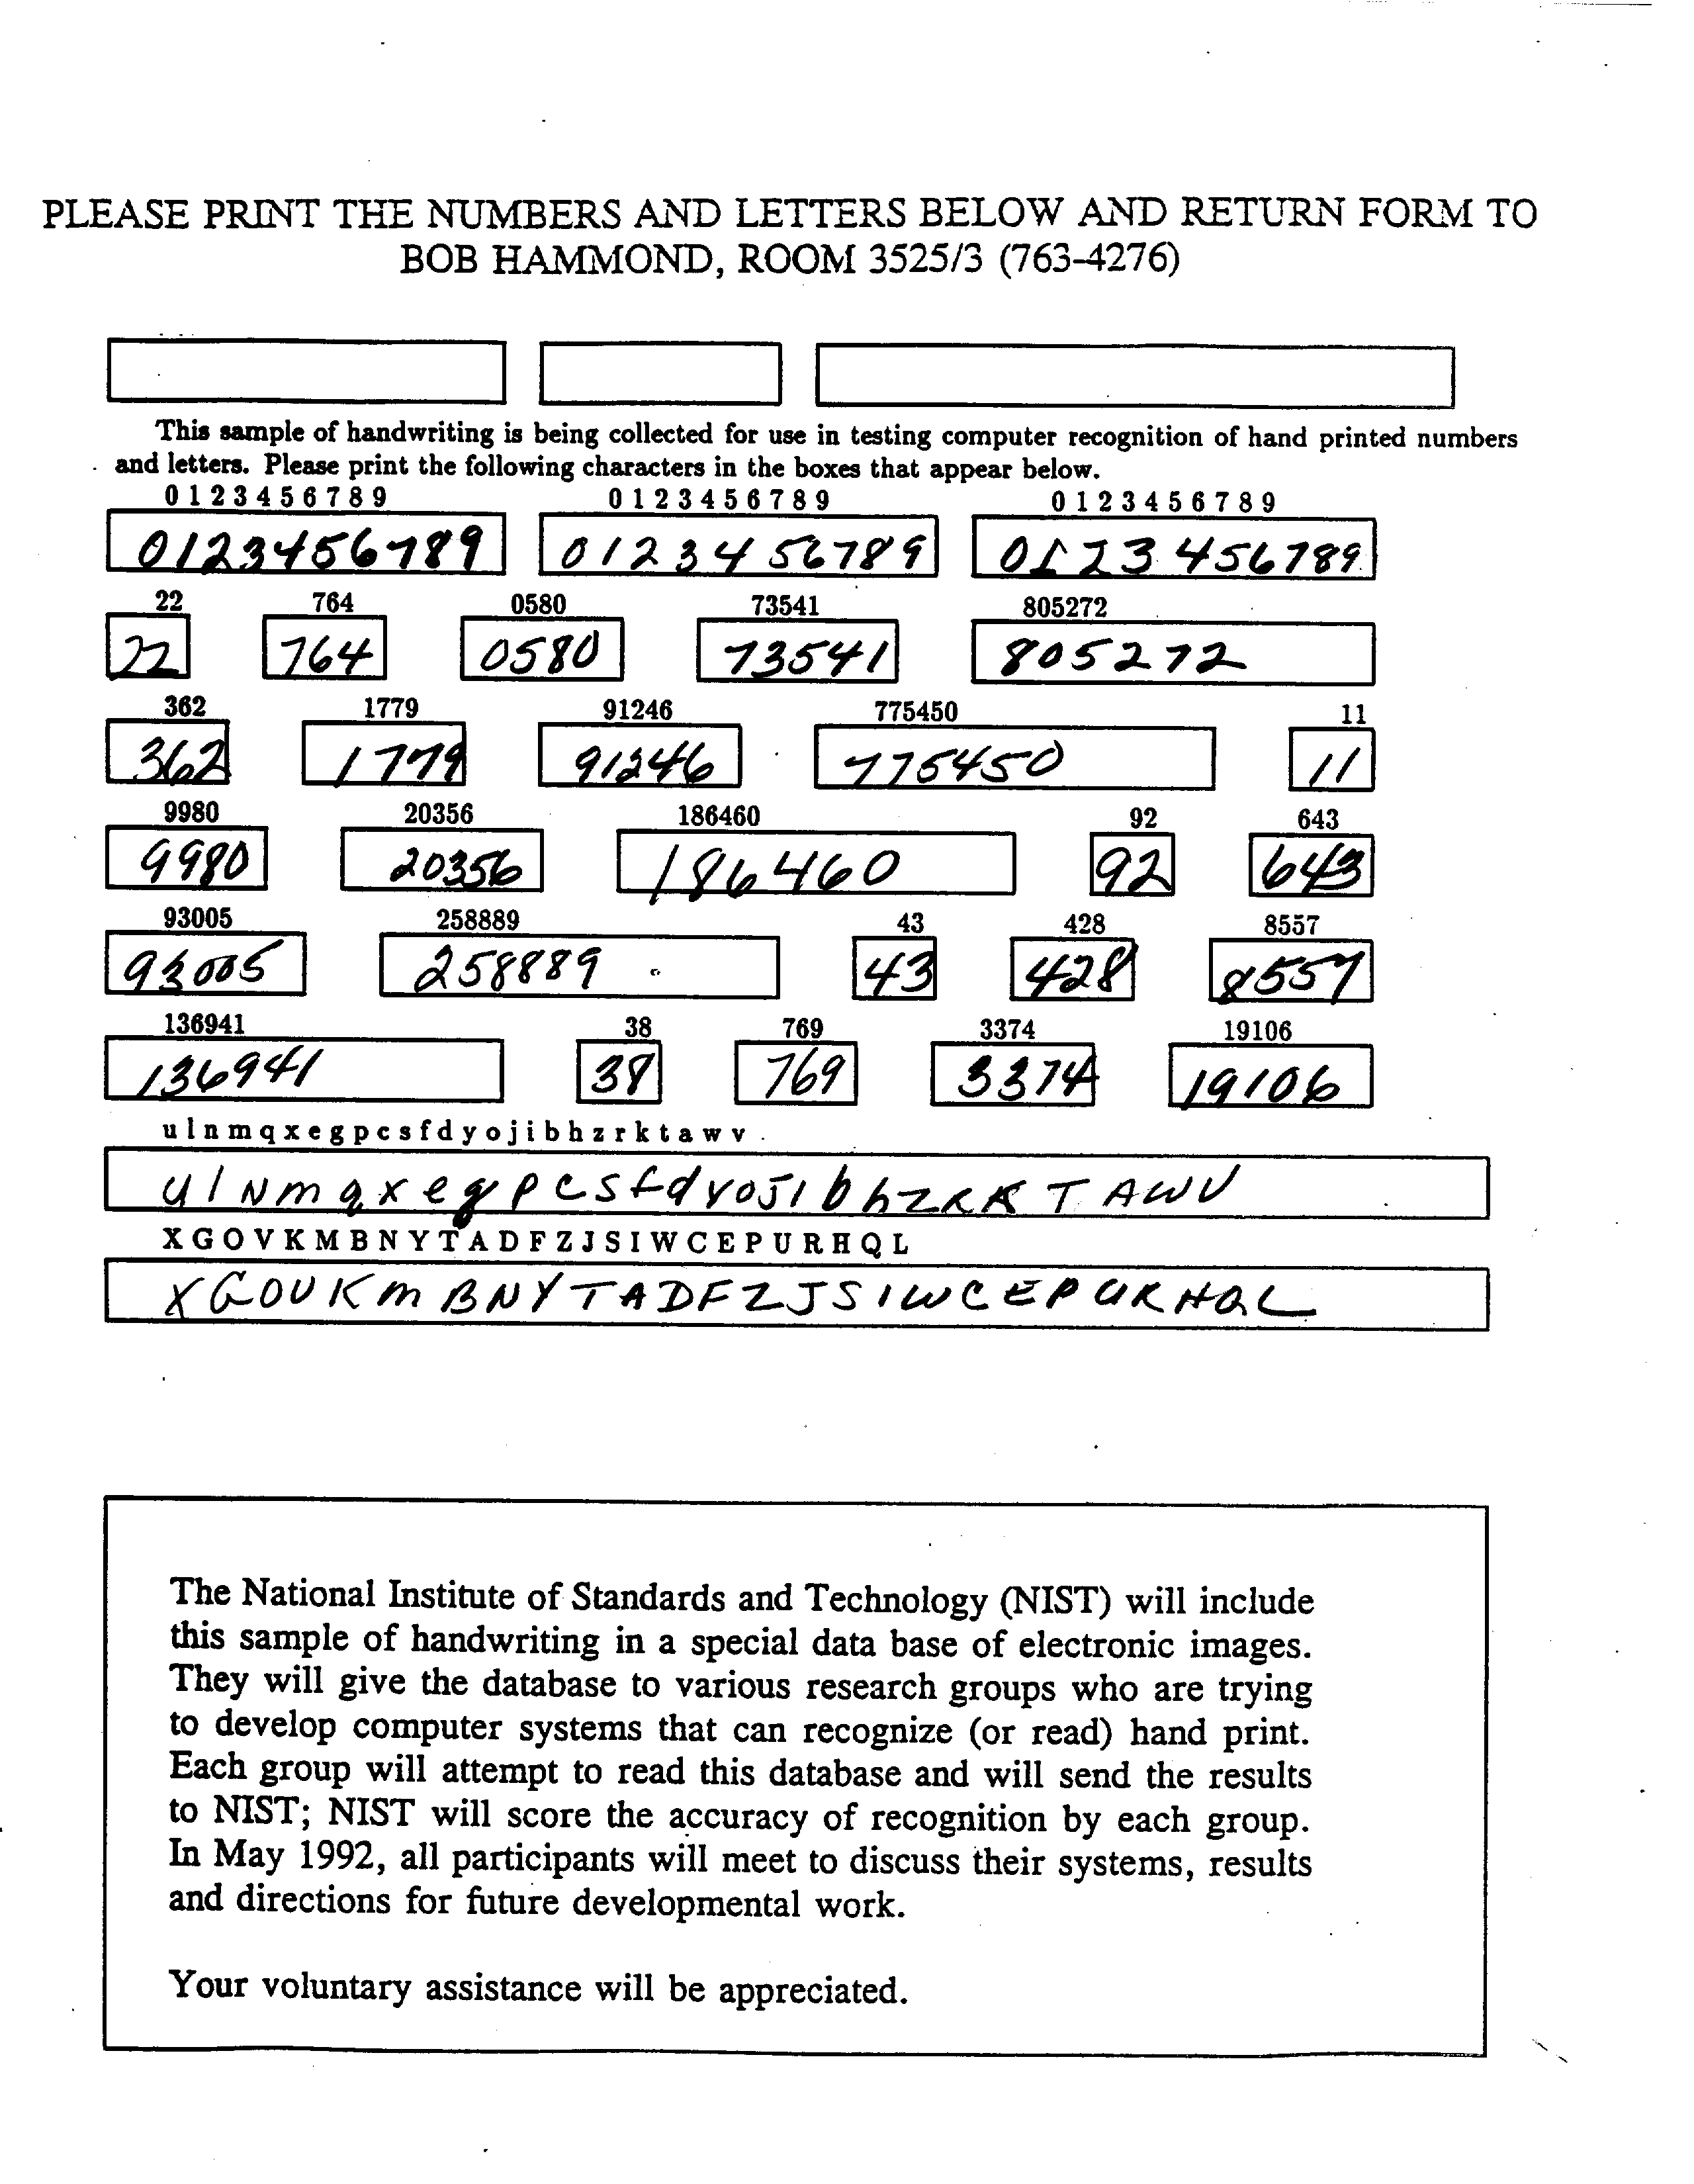 PLEASE PRINT THE NUMBERS AND LETTERS BELOW AND RETURN FORM TO
BOB HAMMOND, ROOM 3525/3 (763-4276)
This sample of handwriting is being collected for use in testing computer recognition of hand printed numbers
and letters. Please print the following characters in the boxes that appear below.
0 1 2 3 4 5 6 7 8 9 0 1 2 3 4 5 6 7 8 9 0 1 2 3 4 5 6 7 8 9
0123456789 0123456789 0123456789
22 764 0580 73541 805272
22 764 0580 73541 805272
362 1779 91246 775450 11
362 1779 91246 775450 11
9980 20356 186460 92 643
9980 20356 186460 92 643
93005 258889 43 428 8557
93005 258889 43 428 8557
136941 38 769 3374 19106
136941 38 769 3374 19106
u l n m q x e g p c s f d y o j i b h z r k t a w v
u l N m q x e g p c s f d y o j i b h z R K T A W V
X G O V K M B N Y T A D F Z J S I W C E P U R H Q L
X G O V K M B N Y T A D F Z J S I W C E P U R H Q L
The National Institute of Standards and Technology (NIST) will include
this sample of handwriting in a special data base of electronic images.
They will give the database to various research groups who are trying
to develop computer systems that can recognize (or read) hand print.
Each group will attempt to read this database and will send the results
to NIST; NIST will score the accuracy of recognition by each group.
In May 1992, all participants will meet to discuss their systems, results
and directions for future developmental work.
Your voluntary assistance will be appreciated.